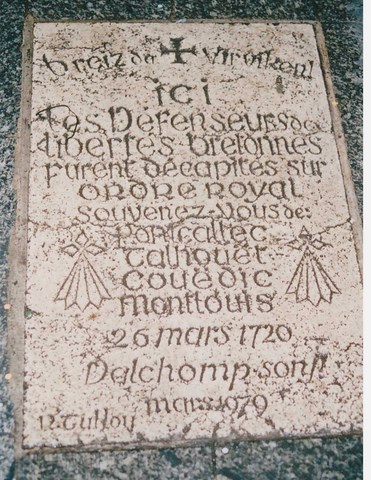 Breiz da ✠ Virviken!
ici
Les Défenseurs des
libertés bretonnes
Furent décapités sur
ORDRE ROYAL
Souvenez-vous de:
Pontcallec
Talhouet
Couëdic
Montlouis
26 mars 1720
Dalc'homp sonj!
mars 1979